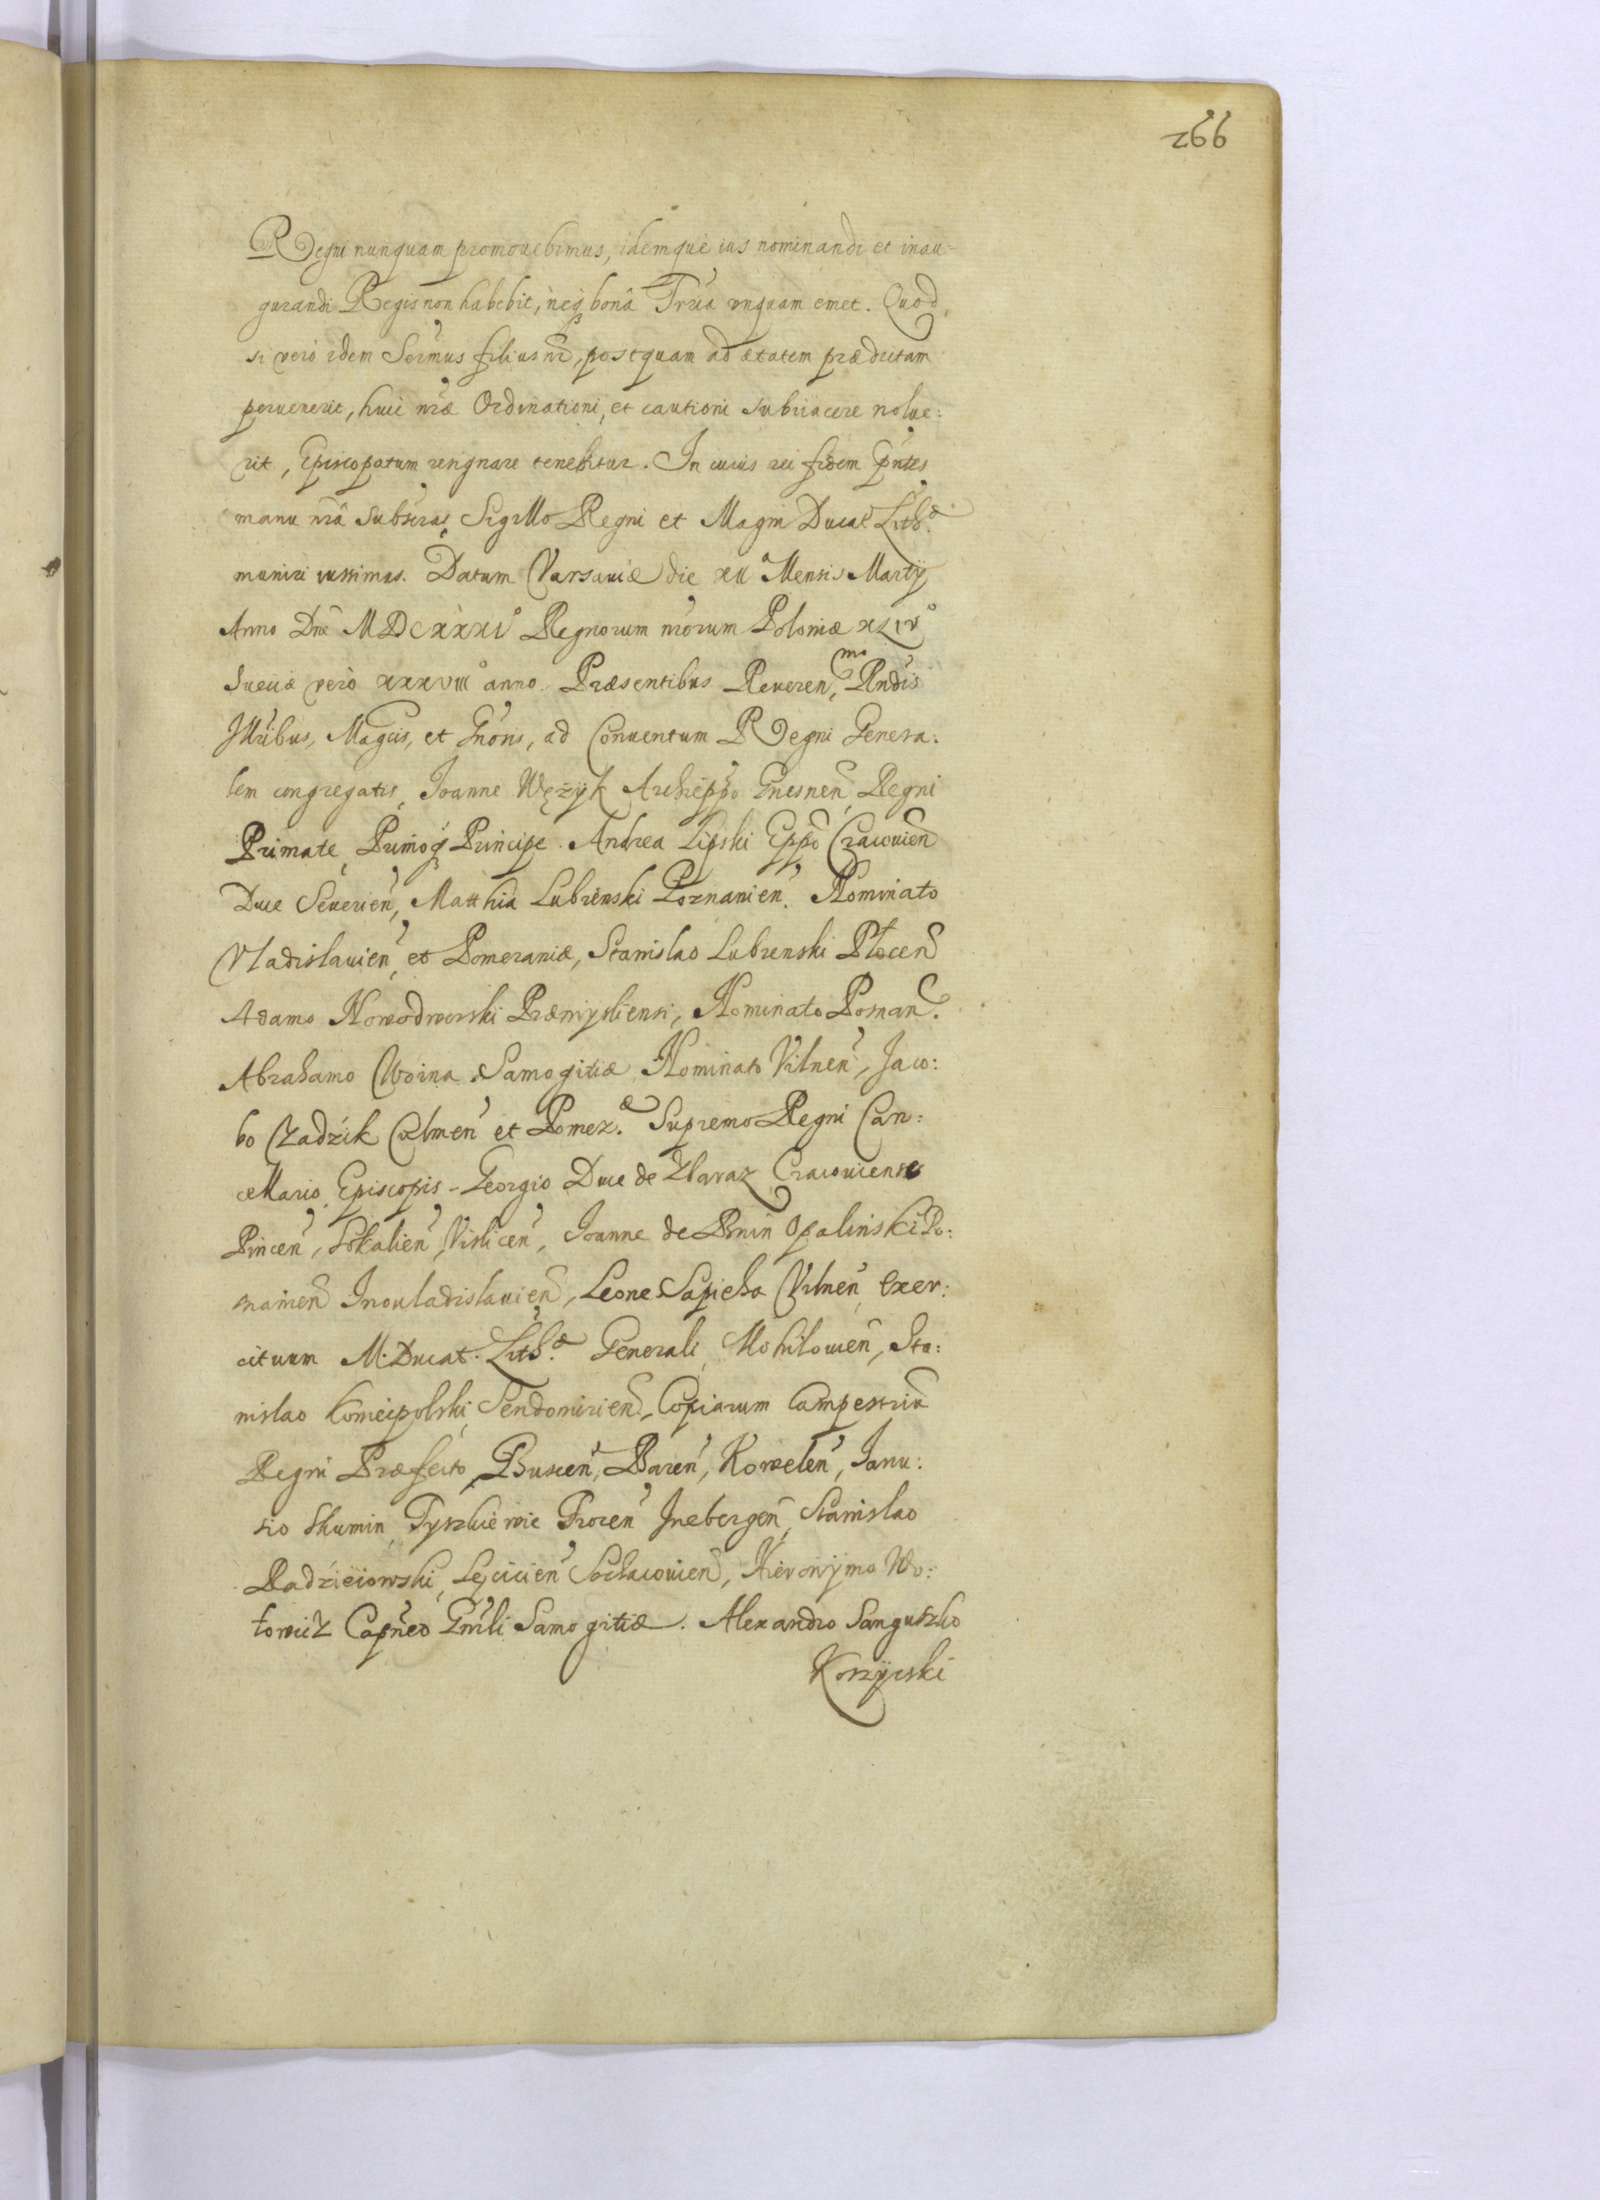 266
Regni nunquam promouebimus, idemque ius nominandi et inau-
gurandi Regis non habebit, neq3 bona Trria vnquam emet. Quod
si vero idem Sermus filius nr, postquam ad ætatem prædictam
peruenerit, huic nræ Ordinationi, et cautioni subiiacere nolue:
rit, Episcopatum resignare tenebitur. In cuius rei fidem pntes
manu nrâ subscras Sigillo Regni et Magni Ducat Lith.æ
muniri iussimus. Datum Varsauiæ die XII Mensis Martij
Anno Dni MDCXXXI Regnorum nrorum Poloniæ XLIV
Sueciæ vero XXXVIII anno. Præsentibus Reueren.mo Rndis
Illribus, Magcis, et Gnõsis, ad Conuentum Regni Genera:
lem congregatis, Ioanne Wężyk Archieppo Gnesnen, Regni
Primate, Primoq3 Principe. Andrea Lipski Eppo Cracouien
Duce Seuerien, Matthia Lubienski Poznanien. Nominato
Vladislauien, et Pomeraniæ, Stanislao Lubienski Płocen
Adamo Nowodworski Præmysliensi, Nominato Posnan.
Abrahamo Woina Samogitiæ Nominato Vilnen, Jaco:
bo Zadzik Culmen et Pomer.æ Supremo Regni Can:
cellario Episcopis - Georgio Duce de Zbaraz Cracouiense
Pincen, Sokalien, Vislicen, Ioanne de Bnin Opalinski Po:
snanien Inouladislauien, Leone Sapieha Vilnen, Exer:
cituum M. Ducat. Lith.æ Generali, Mohilouien, Sta:
nislao Koniecpolski, Sendomirien, Copiarum Campestriu
Regni Præfecto, Buscen, Baren, Kowelen, Ianu:
sio Skumin Tyszkiewic Trocen Inebergen, Stanislao
Radzieiowski, Lęcicien Sochacouien, Hieronymo Wo:
łowicz Capneo Gnrli Samogitiæ. Alexandro Sanguszko
Koszyrski